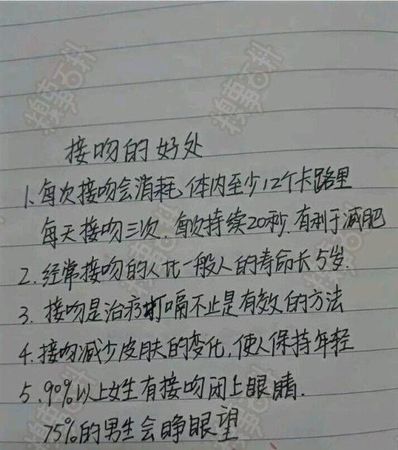 接吻的好处
1.每次接吻会消耗,体内至少12个卡路里
每天接吻三次,每次持续20秒,有利于减肥
2.经常接吻的人比一般人的寿命长5岁.
3.接吻是治疗打嗝不止是有效的方法
4.接吻减少皮肤的变化,使人保持年轻
5.90%以上女生有接吻闭上眼睛.
75%的男生会睁眼望